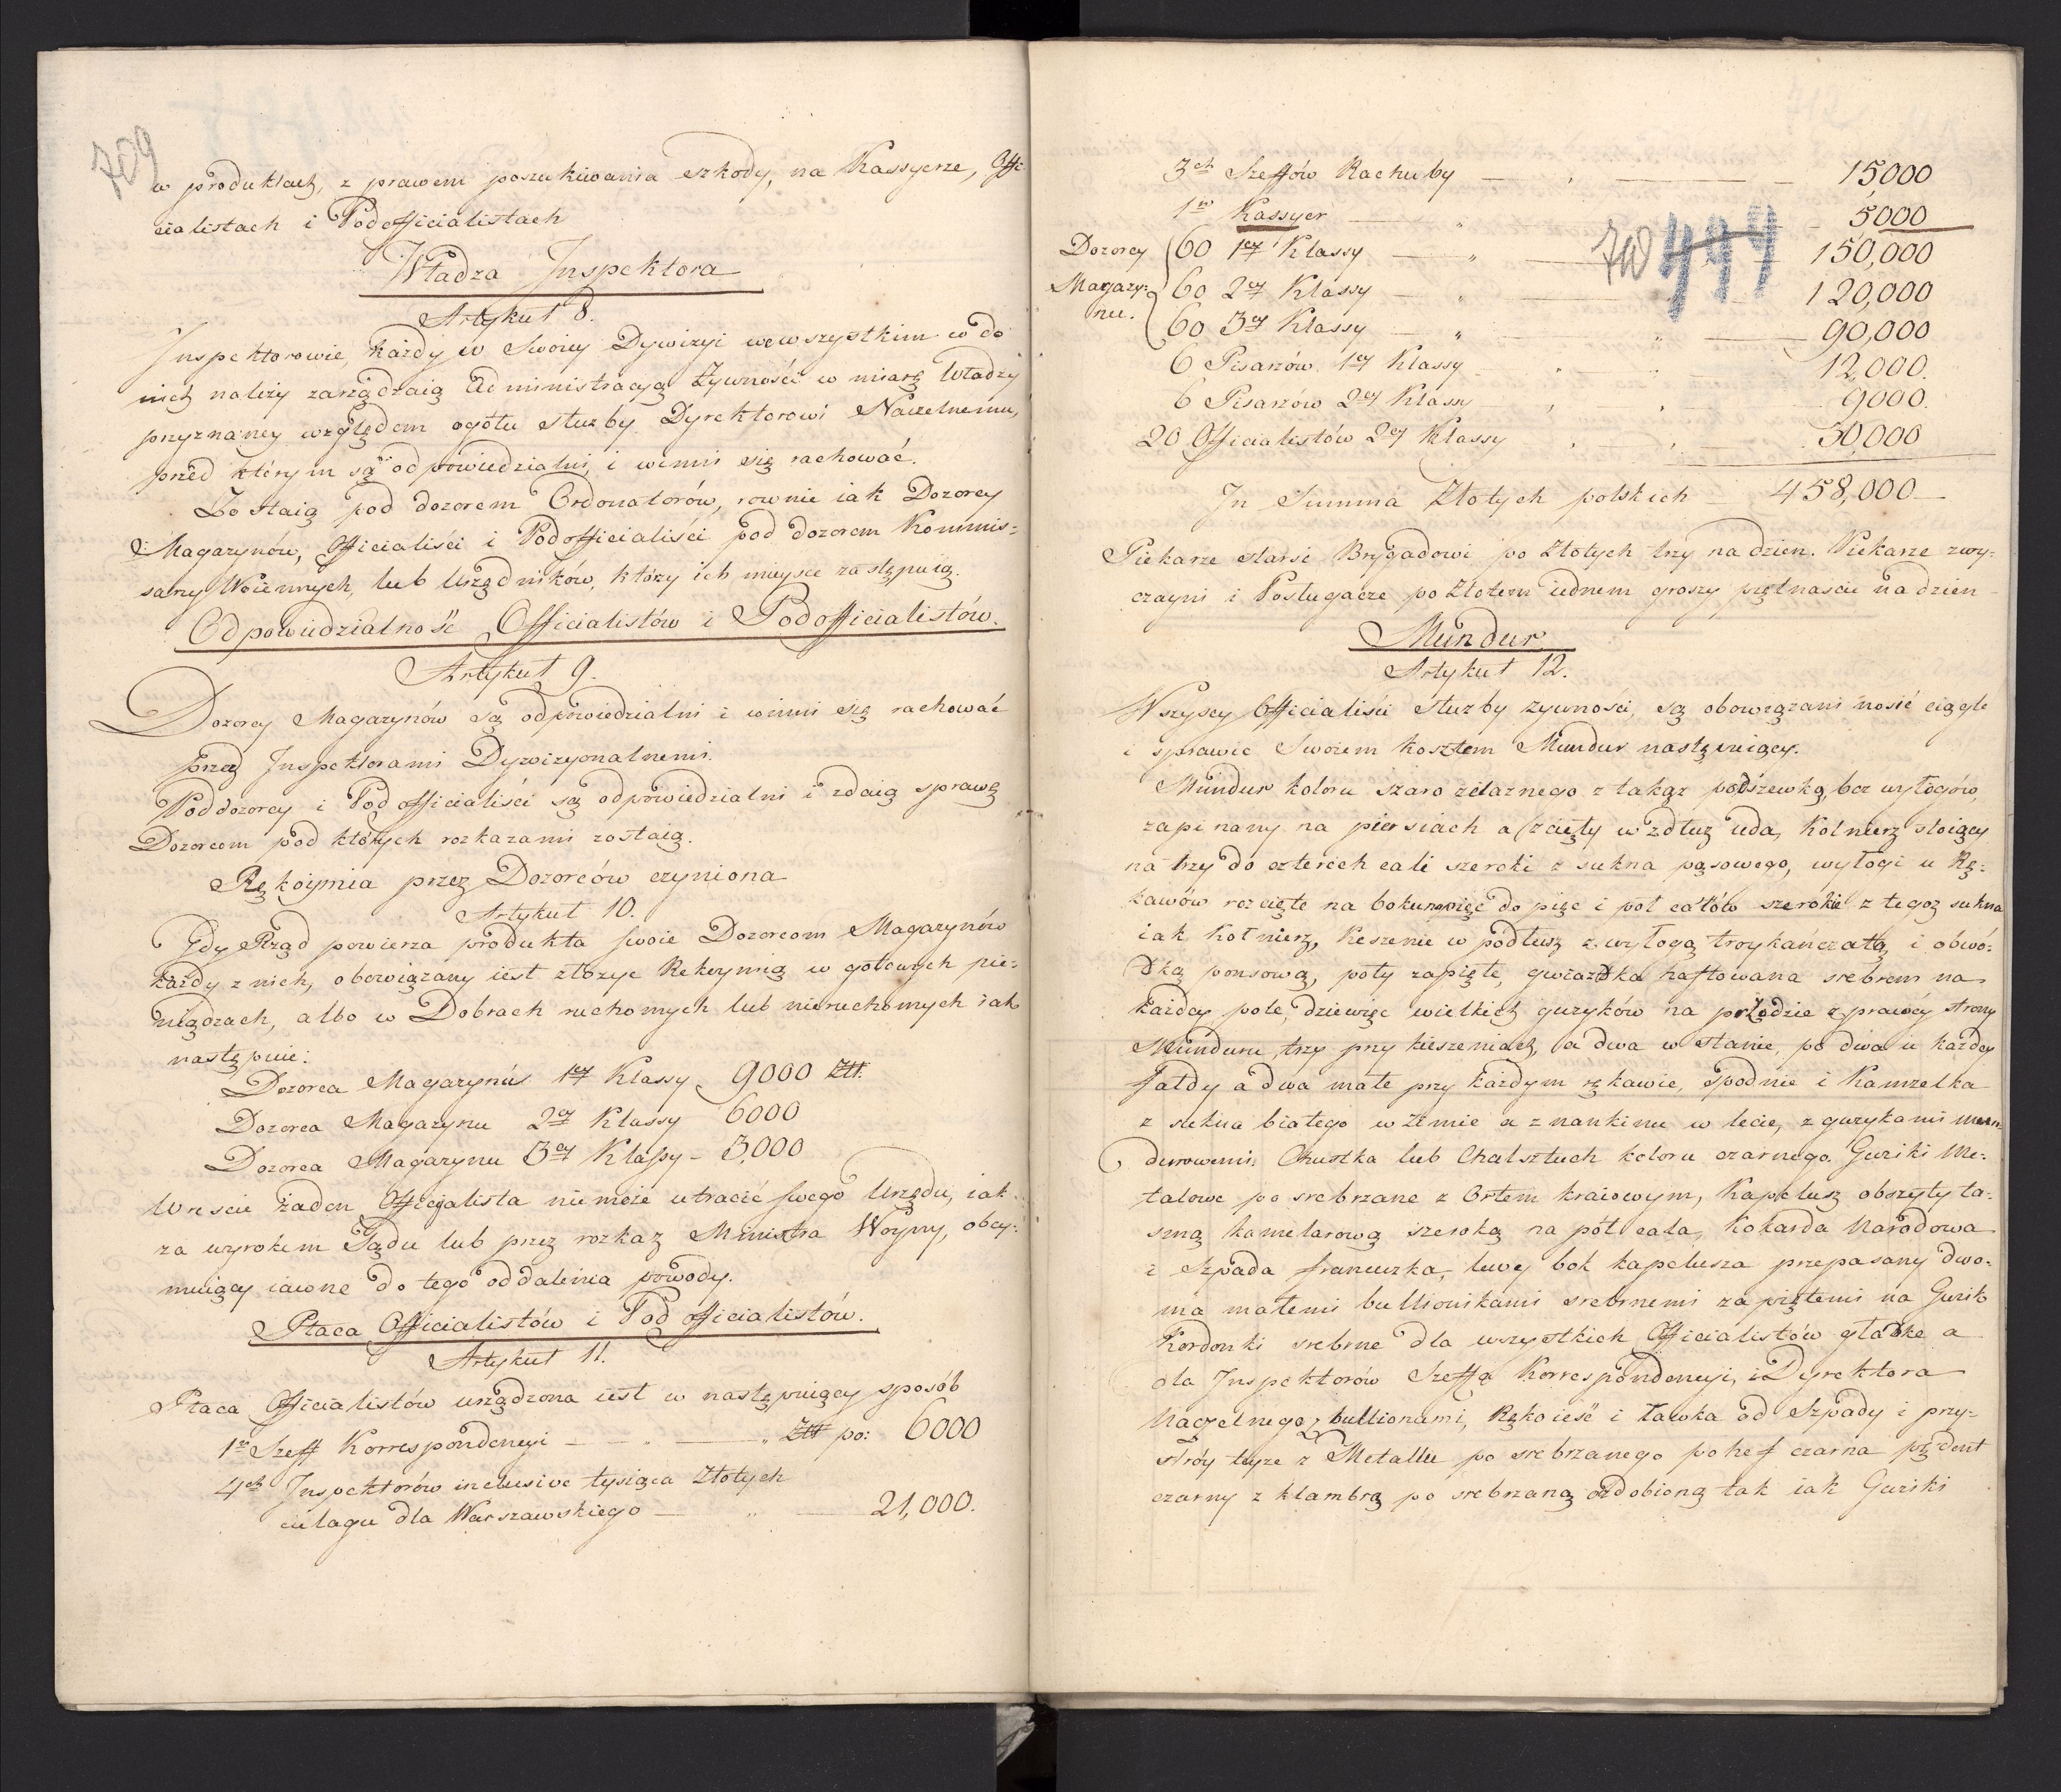 709
w produktach, z prawem poszukiwania szkody, na Kassyerze, Offi-
cialistach i Podofficialistach
Władza Inspektora
Artykuł 8.
Inspektorowie, każdy w Swoiey Dywizyi we wszystkim co do
nich należy zarządzaią Administracyą Żywności w miarę Władzy
przyznaney względem ogółu służby Dyrektorowi Naczelnemu,
przed którym są odpowiedzialni, i winni się rachować.
Zostaią pod dozorem Ordonatorów, rownie iak Dozorcy
Magazynów, Officialiści i Podofficialiści pod dozorem Kommis-
sarzy Woiennych, lub Urzędników, którzy ich mieysce zastępuią.
Odpowiedzialność Officialistów i Podofficialistów.
Artykuł 9.
Dozorcy Magazynów są odpowiedzialni i winni się rachować
przed Inspektorami Dywizyonalnemi.
Poddozorcy i Podofficialiści są odpowiedzialni i zdaią sprawę
Dozorcom pod których rozkazami zostaią.
Rękoymia przez Dozorców czyniona
Artykuł 10.
Gdy Rząd powierza produkta swoie Dozorcom Magazynów
każdy z nich, obowiązany iest złożyć Rękoymią w gotowych pie-
niądzach, albo w Dobrach ruchomych lub nieruchomych iak
następuie:
Dozorca Magazynu 1ey Klassy 9000 Złł.
Dozorca Magazynu 2ey Klassy 6000
Dozorca Magazynu 3ey Klassy - 3,000
Wreście żaden Officialista nie może utracić swego Urzędu, iak
za wyrokiem Sądu lub przez rozkaz Ministra Woyny, obey-
muiący iawne do tego oddalenia powody.
Płaca Officialistów i Podofficialistów.
Artykuł 11.
Płaca Officialistów urządzona iest w następuiący sposób
1n Szeff Korrespondencyi — " — " Złł po: 6000
4ch Inspektorów inclusive tysiąca Złotych
culagu dla Warszawskiego — " — 21,000.
3ch Szeffów Rachuby — " — 15000
1n Kassyer — " — 5000
710 499
Dozorcy 60 1ey Klassy — " — 150,000
Magazy- 60 2ey Klassy — " — 120,000
nu. 60 3ey Klassy — " — 90,000
6 Pisarzów 1ey Klassy " " 12,000.
6 Pisarzów 2ey Klassy " " 9000.
20 Officialistów 2ey Klassy " " 30,000
In Summa Złotych polskich — 458,000 —
Piekarze starsi Brygadowi po Złotych trzy na dzien. Piekarze zwy-
czayni i Posługacze po Złotem iednem groszy piętnaście na dzien
Mundur
Artykuł 12.
Wszyscy Officialiści służby żywności, są obowiązani nosić ciągle
i sprawić Swoiem kosztem Mundur następuiący.
Mundur koloru szaro żelaznego z takąż podszewką, bez wyłogów,
zapinany na piersiach a ścięty wzdłuż uda, Kołnierz stoiący
na trzy do czterech cali szeroki z sukna pąsowego, wyłogi u Rę-
kawów rozcięte na boku na pięć do pięć i pół calów szerokie z tegoż sukna
iak Kołnierz, Keszenie w podłusz z wyłogą troykańczatą, i obwó-
dką ponsową, poły zapięte, gwiazdka haftowana srebrem na
każdey pole, dziewięc wielkich guzyków na przodzie z prawéy strony
Munduru, trzy przy kieszeniach, a dwa w stanie, po dwa u każdey
fałdy a dwa małe przy każdym rękawie, Spodnie i Kamzelka
z sukna białego w zimie a z nankinu w lecie, z guzykami mun-
durowemi, Chustka lub Chalsztuch koloru czarnego. Guziki Me-
talowe posrebrzane z Orłem kraiowym, Kapelusz obszyty ta-
smą kamelarową szeroką na pół cala, Kokarda Narodowa
i Szpada francuzka, lewy bok kapelusza przepasany dwo-
ma małemi bullionikami srebrnemi zapiętemi na Guzik
Kordonki srebrne dla wszystkich Officialistów gładkie a
dla Inspektorów Szeffa Korrespondencyi, i Dyrektora
Naczelnego z bullionami, Rękoieść i Gałka od Szpady i przy-
stróy teyże z Metallu posrebrzanego pochef czarna pędent
czarny z klambrą posrebrzaną ozdobioną tak iak Guziki